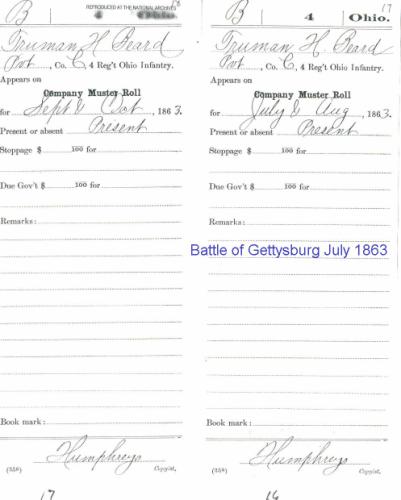 REPRODUCED AT THE NATIONAL ARCHIVES
B 4 Ohio.
Truman H. Beard
Pvt, Co. C, 4 Reg't Ohio Infantry.
Appears on
Company Muster Roll
for Sept & Oct, 1863.
Present or absent Present
Stoppage $ 100 for
Due Gov't $ 100 for
Remarks:
Book mark:
Humphreys
(358) Copyist.
17
17
B 4 Ohio.
Truman H. Beard
Pvt, Co. C, 4 Reg't Ohio Infantry.
Appears on
Company Muster Roll
for July & Aug, 1863.
Present or absent Present
Stoppage $ 100 for
Due Gov't $ 100 for
Remarks:
Battle of Gettysburg July 1863
Book mark:
Humphreys
(358) Copyist.
16